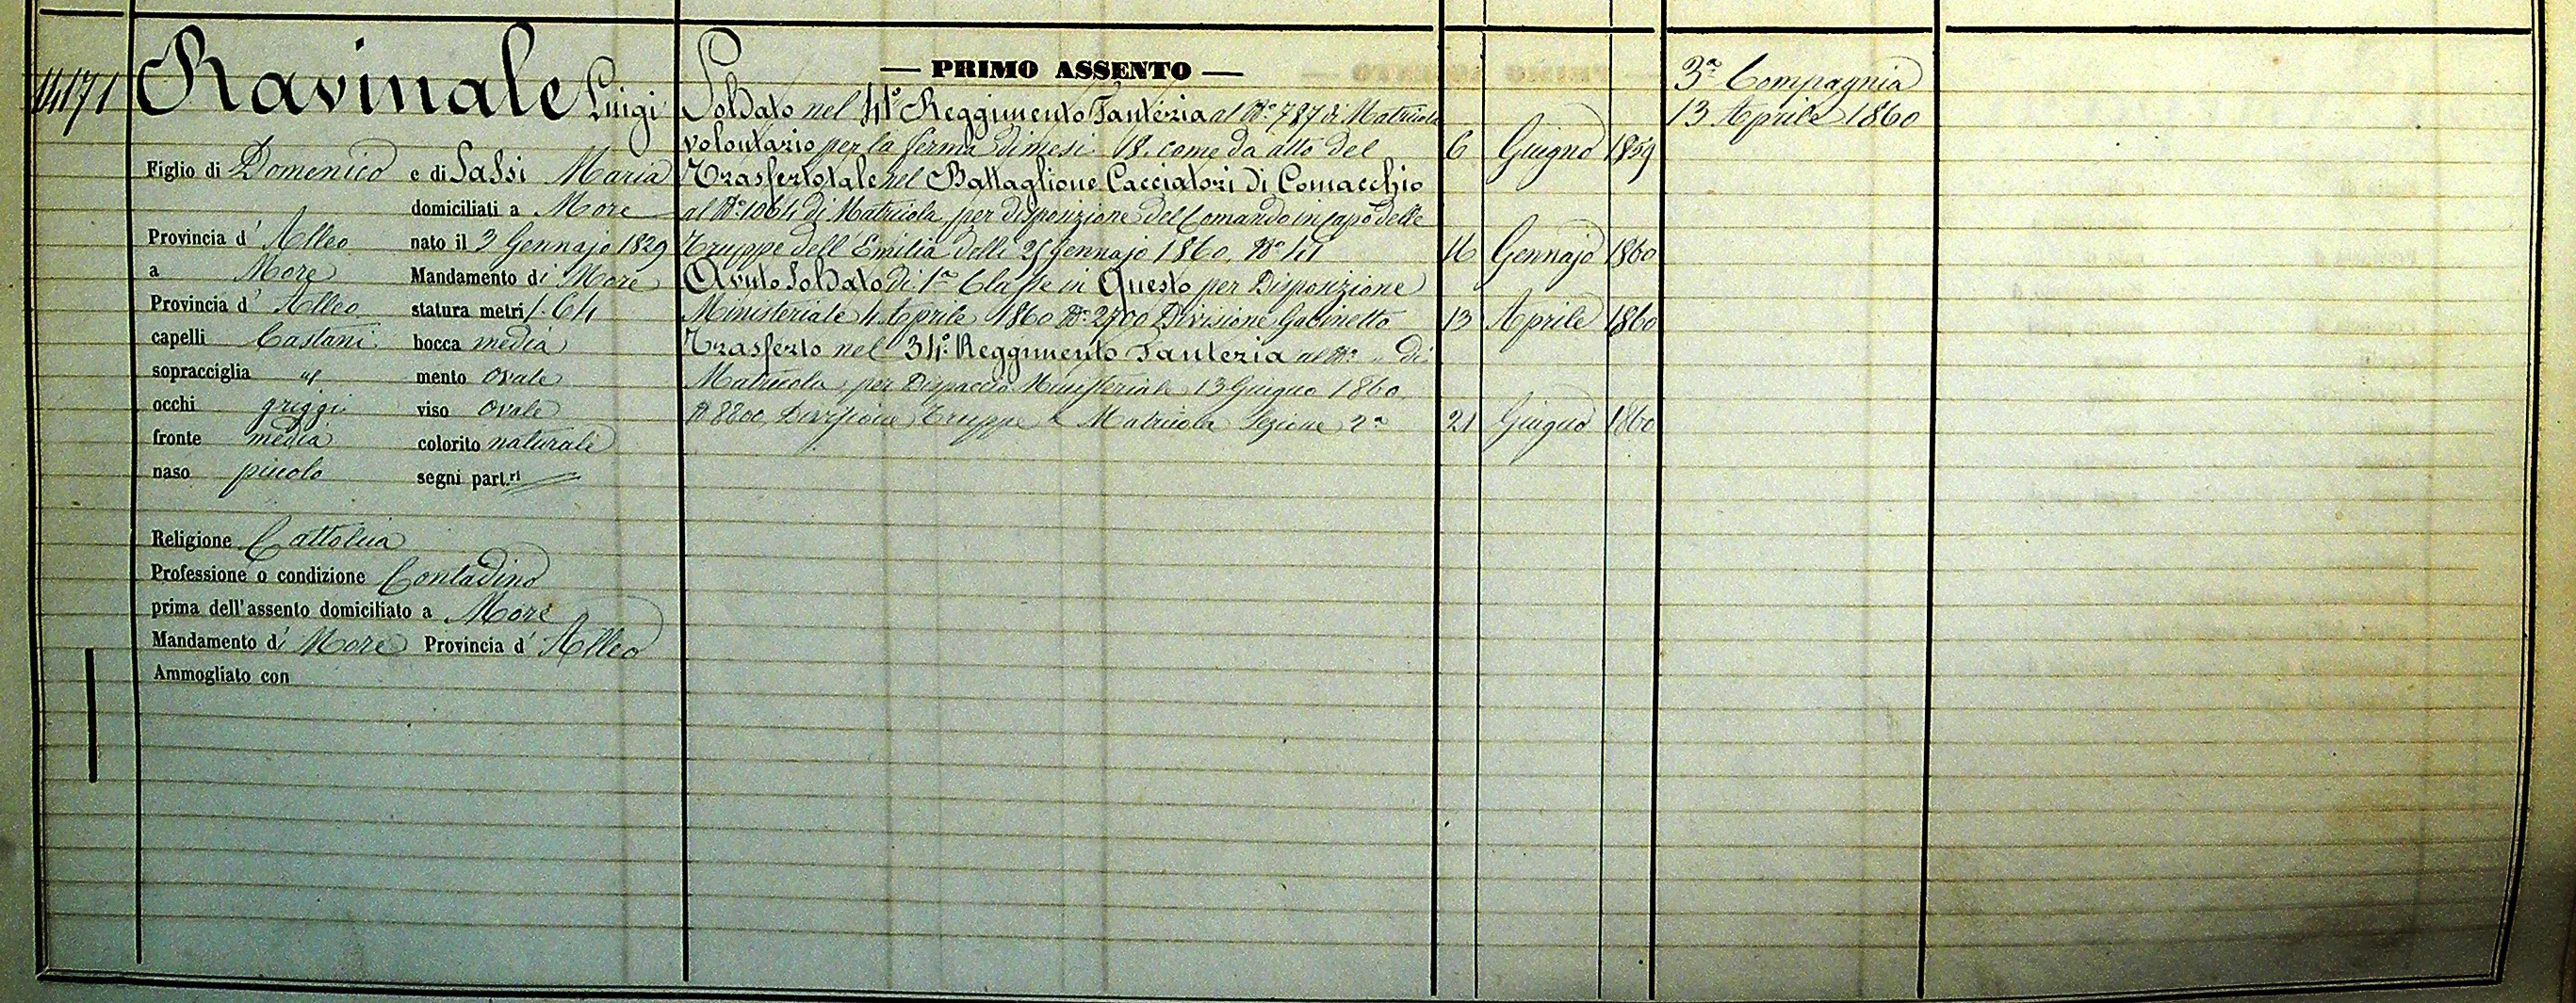 14171
Ravinale Luigi
Figlio di Domenico e di Sassi Maria
domiciliati a More
Provincia d' Alleo nato il 3 Gennajo 1829
a More Mandamento di More
Provincia d' Alleo statura metri 1.64
capelli Castani bocca media
sopracciglia id mento ovale
occhi griggi viso ovale
fronte media colorito naturale
naso picolo segni part.ri
Religione Cattolica
Professione o condizione Contadino
prima dell'assento domiciliato a More
Mandamento di More Provincia d' Alleo
Ammogliato con
— PRIMO ASSENTO —
Soldato nel 41º Reggimento Fanteria al Nº 787 di Matricola
volontario per la ferma di mesi 18. come da atto del 6 Giugno 1859
Trasferto tale nel Battaglione Cacciatori di Comacchio
al Nº 1064 di Matricola per disposizione del Comando in capo delle
Truppe dell'Emilia delli 25 Gennajo 1860, Nº 141 16 Gennajo 1860
Avuto Soldato di 1ª Classe in Questo per Disposizione
Ministeriale 4 Aprile 1860 Nº 2700 Divisione Gabinetto 13 Aprile 1860
Trasferto nel 34º Reggimento Fanteria al Nº " di
Matricola, per Dispaccio Ministeriale 13 Giugno 1860
N 8800, Divisione Truppe e Matricola Sezione 2ª 21 Giugno 1860
3ª Compagnia
13 Aprile 1860